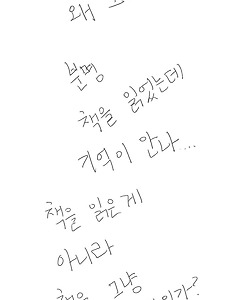 왜
분명
책을 읽었는데
기억이 안나...
책을 읽은게
아니라
책을 그냥